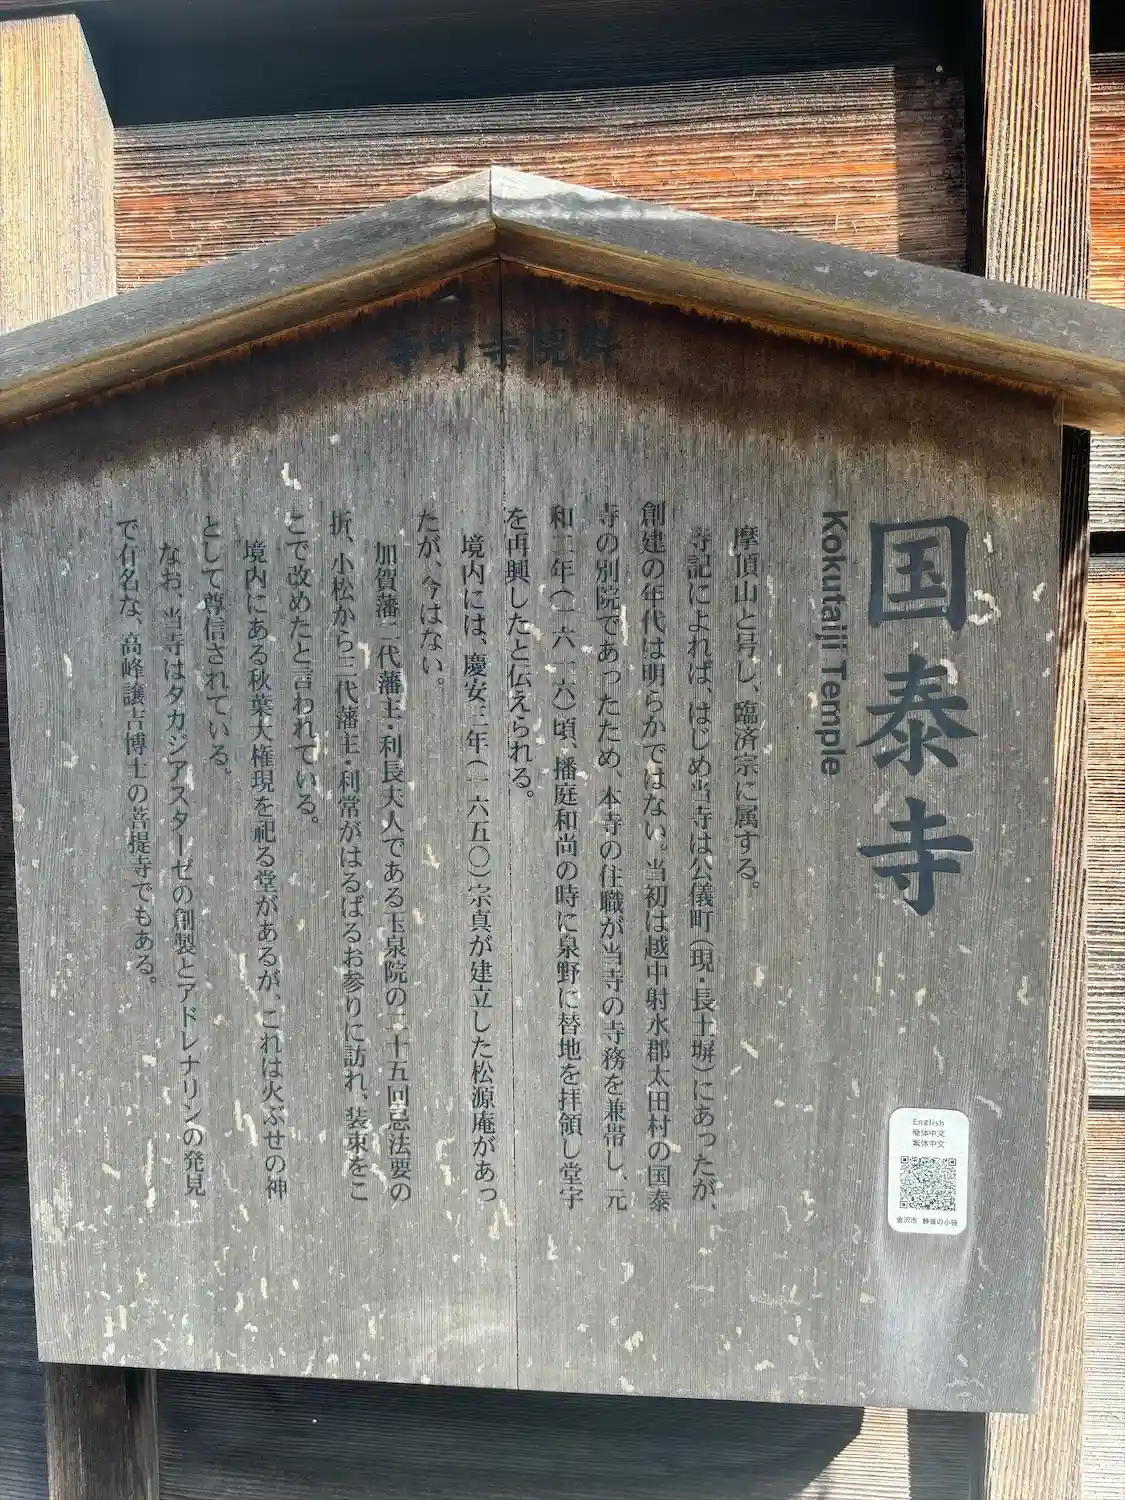 寺町寺院群
国泰寺
Kokutaiji Temple
摩頂山と号し、臨済宗に属する。
寺記によれば、はじめ当寺は公儀町(現・長土塀)にあったが、
創建の年代は明らかではない。当初は越中射水郡太田村の国泰
寺の別院であったため、本寺の住職が当寺の寺務を兼帯し、元
和二年(一六一六)頃、播庭和尚の時に泉野に替地を拝領し堂宇
を再興したと伝えられる。
境内には、慶安三年(一六五〇)宗真が建立した松源庵があっ
たが、今はない。
加賀藩二代藩主・利長夫人である玉泉院の二十五回忌法要の
折、小松から三代藩主・利常がはるばるお参りに訪れ、装束をこ
こで改めたと言われている。
境内にある秋葉大権現を祀る堂があるが、これは火ぶせの神
として尊信されている。
なお、当寺はタカジアスターゼの創製とアドレナリンの発見
で有名な、高峰譲吉博士の菩提寺でもある。
English
简体中文
繁体中文
金沢市 静音の小径